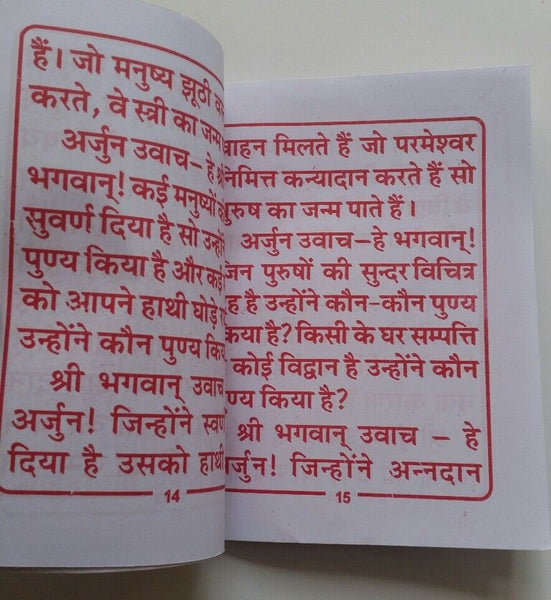 हैं। जो मनुष्य झूठी
करते, वे स्त्री का जन्म
अर्जुन उवाच– हे
भगवान्! कई मनुष्यों
सुवर्ण दिया है सो उन्होंने
पुण्य किया है और कई
को आपने हाथी घोड़े
उन्होंने कौन पुण्य
श्री भगवान् उवाच
अर्जुन! जिन्होंने स्वर्ण
दिया है उसको हाथी
14
मिलते हैं जो परमेश्वर
कन्यादान करते हैं सो
का जन्म पाते हैं।
अर्जुन उवाच–हे भगवान्!
पुरुषों की सुन्दर विचित्र
है उन्होंने कौन–कौन पुण्य
है? किसी के घर सम्पत्ति
कोई विद्वान है उन्होंने कौन
किया है?
श्री भगवान् उवाच – हे
जिन्होंने अन्नदान
15